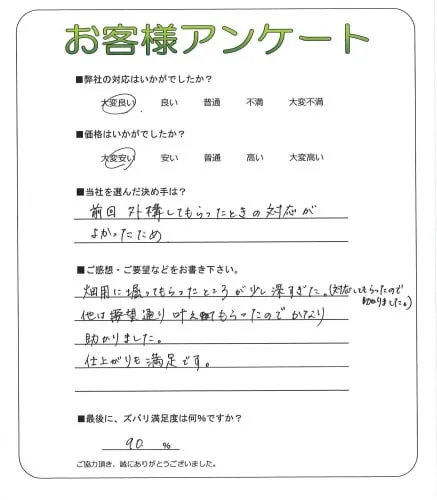 お客様アンケート
■弊社の対応はいかがでしたか?
大変良い 良い 普通 不満 大変不満
■価格はいかがでしたか?
大変安い 安い 普通 高い 大変高い
■当社を選んだ決め手は?
前回 外構してもらったときの対応が
よかったため
■ご感想・ご要望などをお書き下さい。
畑用に掘ってもらったところが少し深すぎた。(対応してもらったので
助かりました。)
他は要望通り叶えてもらったのでかなり
助かりました。
仕上がりも満足です。
■最後に、ズバリ満足度は何%ですか?
90 %
ご協力頂き、誠にありがとうございました。